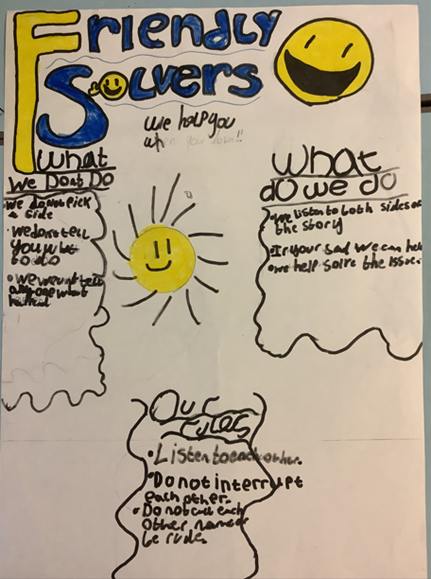 Friendly
Solvers
we help you
when your down!!
What
We Dont Do
we do not pick
a side
· we dont tell
you what
to do
· We we wont tell
any one what
What
do we do
· we listen to both sides of
the story
If your sad we can help
· we help solve the issue.
Our
rules
· Listen to each other.
· Do not interrupt
each other.
· Do not call each
other names or
be rude.